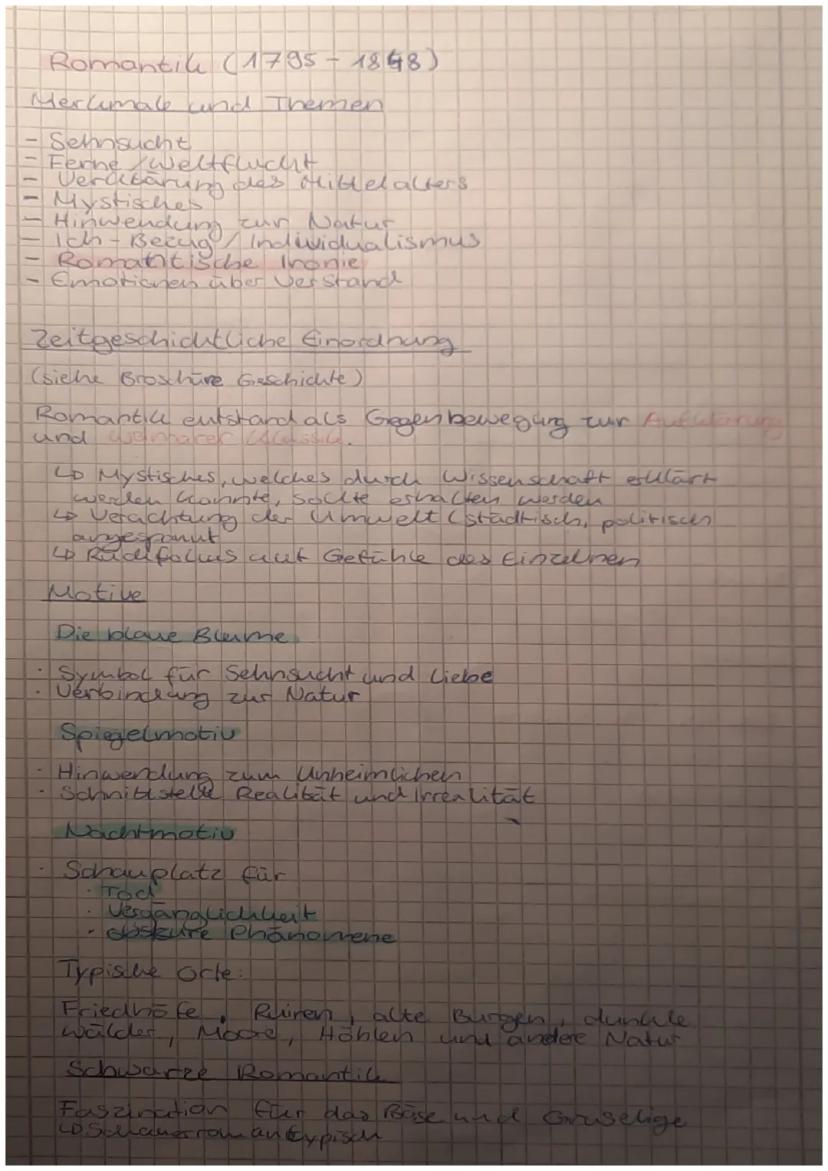 Romantik (1795 - 1848)
Merkmale und Themen
- Sehnsucht
- Ferne / Weltflucht
- Verklärung des Mittelalters
- Mystisches
- Hinwendung zur Natur
- Ich-Bezug / Individualismus
- Romantische Ironie
- Emotionen über Verstand
Zeitgeschichtliche Einordnung
(siehe Broschüre Geschichte)
Romantik entstand als Gegenbewegung zur Aufklärung
und Weimarer Klassik.
↳ Mystisches, welches durch Wissenschaft erklärt
werden konnte, sollte erhalten werden
↳ Verachtung der Umwelt (städtisch, politisch
angespannt
↳ Rückfokus auf Gefühle des Einzelnen
Motive
Die blaue Blume
· Symbol für Sehnsucht und Liebe
· Verbindung zur Natur
Spiegelmotiv
· Hinwendung zum Unheimlichen
· Schnittstelle Realität und Irrealität
Nachtmotiv
· Schauplatz für
· Tod
· Vergänglichkeit
· obskure Phänomene
Typische Orte:
Friedhöfe, Ruinen, alte Burgen, dunkle
Wälder, Moore, Höhlen und andere Natur
Schwarze Romantik
Faszination für das Böse und Gruselige
↳ Schauerroman typisch